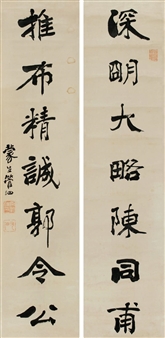 深明大略陳同甫
推布精誠郭令公